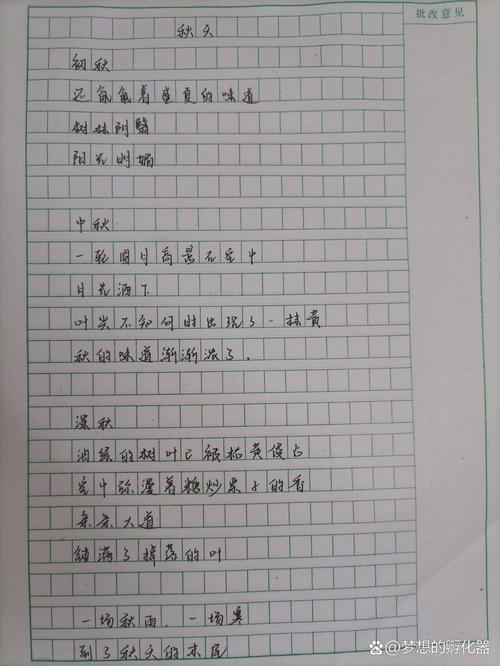 批改意见
秋天
初秋
还氤氲着盛夏的味道
树林阴翳
阳光明媚
中秋
一轮圆月高悬在空中
月光洒下
叶尖不知何时出现了一抹黄
秋的味道渐渐浓了。
深秋
油绿的树叶已被枯黄侵占
空中弥漫着糖炒栗子的香
条条大道
铺满了掉落的叶
一场秋雨,一场寒
到了秋天的末尾
@梦想的孵化器